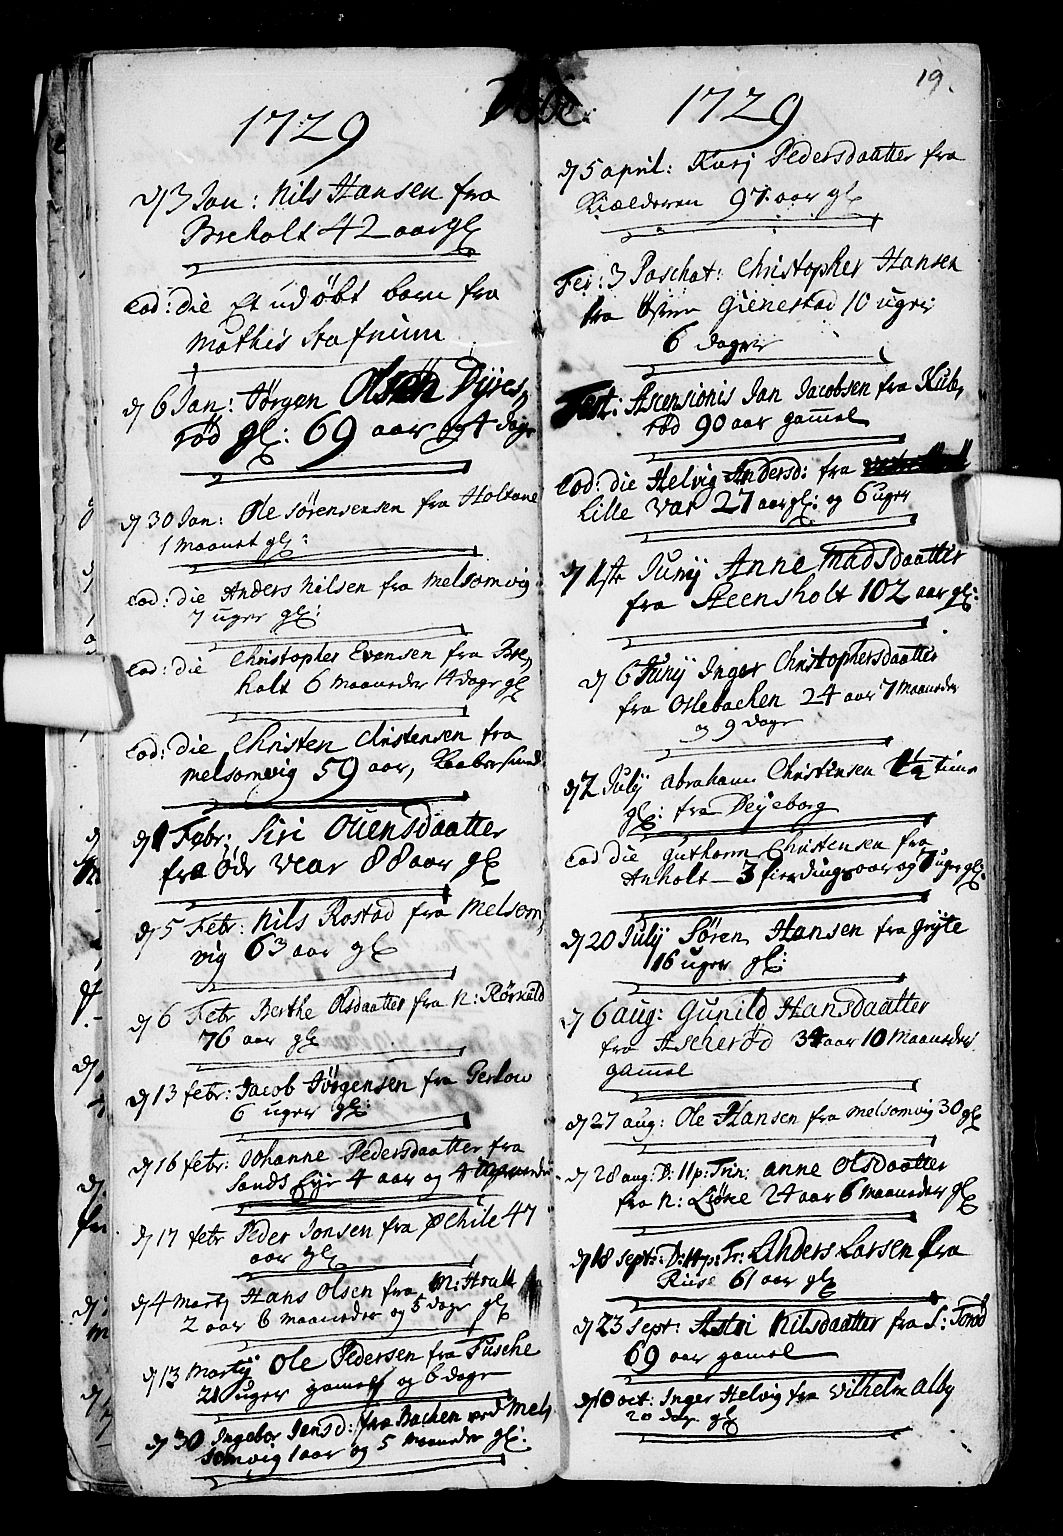 1729
d 3 Jan: Nils Hansen fra
Breholt 42 aar gl
Eod: die Et udøbt barn fra
Mathis Stafnum
d 6 Jan: Jørgen Olsen Dyves,
rød gl: 69 aar og 4 dage
d 30 Jan: Ole Sørensensen fra Holtane
1 maanet gl:
Eod: die Anders Nilsen fra Melsomvig
7 uger gl:
Eod: die Christopher Evensen fra Bre,
holt 6 maaneder 14 dage gl
Eod: die Christen Christensen fra
Melsomvig 59 aar,
d 1 Febr: Siri Ouensdaatter
fra Ødr var 88 aar gl
d 5 Febr: Nils Rostad fra Melsom,
vig 63 aar gl
d 6 Febr Berthe Olsdaatter fra N: Rørkuld
76 aar gl
d 13 febr: Jacob Jørgensen fra Gerlow
6 uger gl:
d 16 febr: Johanne Pedersdaatter fra
Sands Eye 4 aar og 4 maaneder
d 17 febr Peder Jonsen fra 47
aar gl
d 4 Martj Hans Olsen fra M:
2 aar 6 maaneder og 5 dage gl
d 13 Martij Ole Pedersen fra Fusche
21 uger gamel og 6 dage
d 30 Ingebor Jensd: fra Bachen ved Mel,
somvig 1 aar og 5 maaneder gl:
19.
1729
d 5 april: Karj Pedersdaatter fra
Kiælderen 97 aar gl
Fer: 3 Paschat: Christopher Hansen
fra Gienestad 10 uger
6 dager
Fest: Ascensionis Jan Jacobsen fra Kub,
rød 90 aar gammel
Eod: die Helvig Andersd: fra
Lille var 27 aar gl: og 6 uger
d 1ste Junij Anne Madsdaatter
fra Steensholt 102 aar gl:
d 6 Junij Inger Christophersdaatter
fra Oslebachen 24 aar 7 maaneder
9 dage
d 2 July Abraham Christensen 1½ time
gl: fra Deyeborg
Eod die Guthorm Christensen fra
Anholt 3 fierdings aar og 7 uger gl
d 20 July Søren Hansen fra Gryte
16 uger gl:
d 6 aug: Gunild Hansdaatter
fra Ascherød 34 aar 10 Maaneder
gamel
d 27 aug: Ole Hansen fra Melsomvig 30 gl
d 28 aug: D: 11 p: Trin: Anne Olsdaatter
fra N: Liøne 24 aar 6 maaneder gl
d 18 sept: D: 14 p: Tr: Anders Larsen fra
Ruse 61 aar gl
d 23 sept: Astri Nilsdaatter fra S: Torød
69 aar gamel
d 10 oct: Inger Helvig fra Vilhelm Alby
20 dage gl